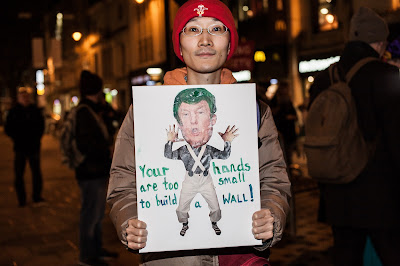 Your hands
are too small
to build a WALL!